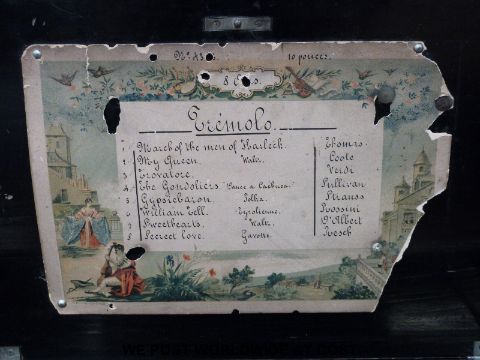 10 pouces.
8
Trémolo.
1 March of the men of Harlech. Thomrs.
2 My Queen. Walz. Coote
3 Trovatore. Verdi
4 The Gondoliers. Dance a Cachuca. Sullivan
5 Gypsiebaron. Polka. Strauss
6 William Tell. Tyrolienne. Rossini
7 Sweethearts. Waltz. D'Albert
8 Secreet love. Gavotte. Resch